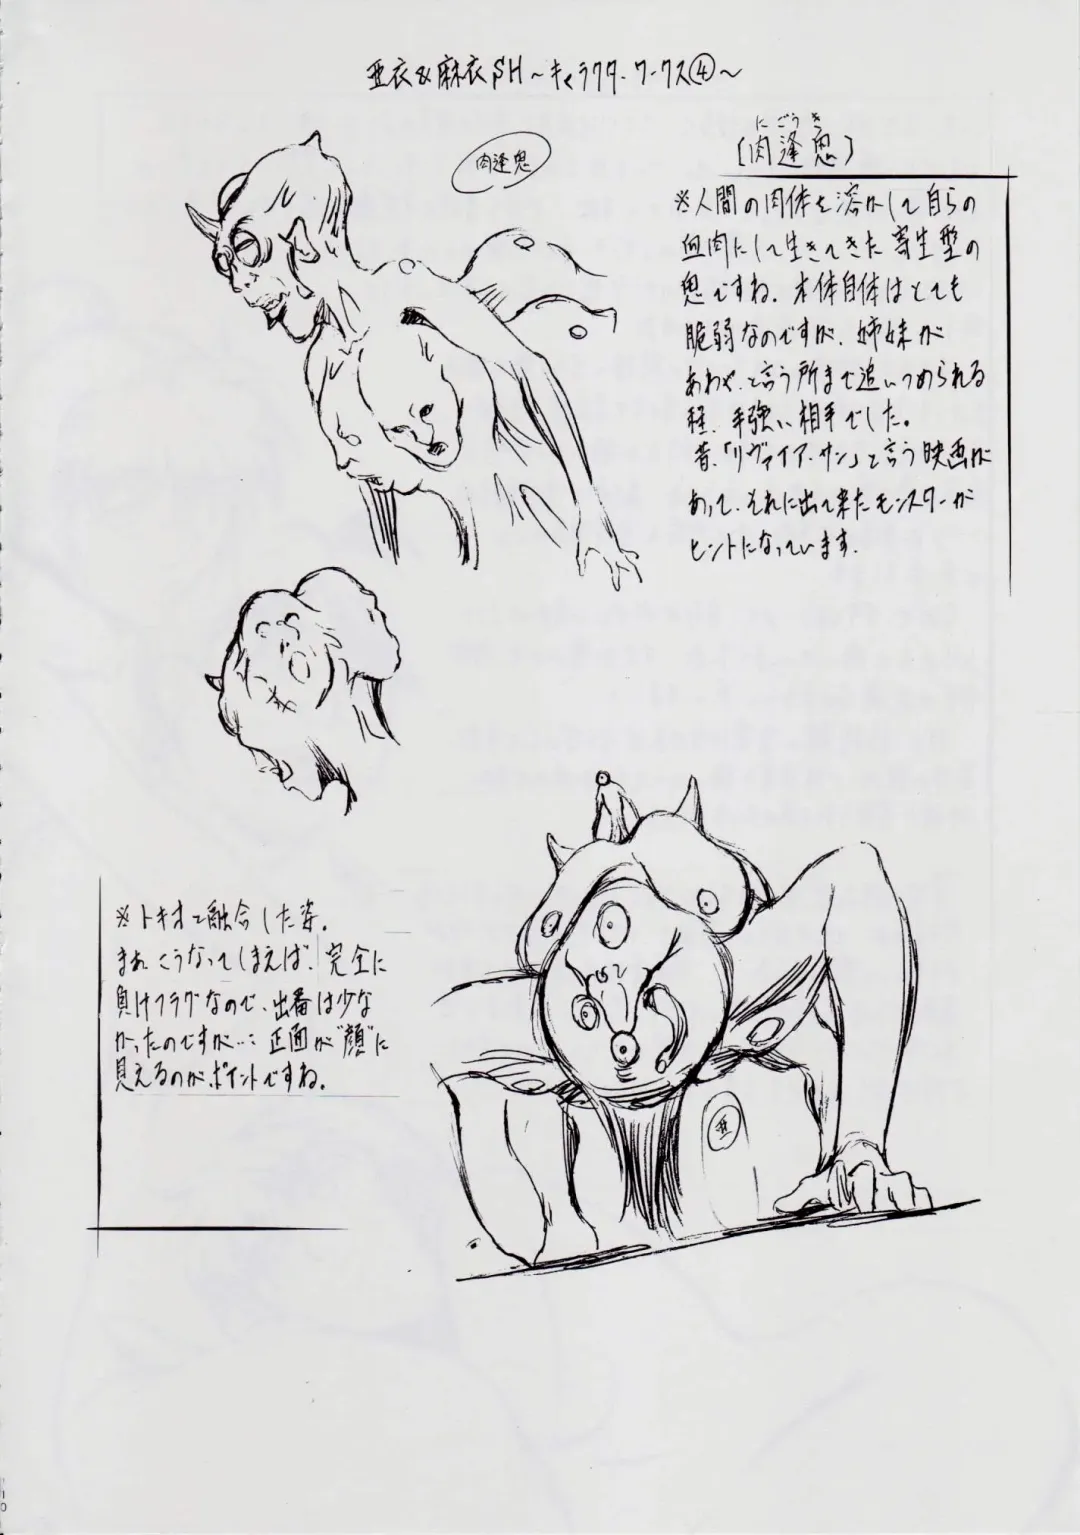 亜衣&麻衣SH～キャラクターワークス④～
肉逢鬼
にごうき
〔肉逢鬼〕
※人間の肉体を溶かして自らの
血肉にして生きてきた寄生型の
鬼ですね。本体自体はとても
脆弱なのですが、姉妹が
あわや、と言う所まで追いつめられる
程、手強い相手でした。
昔、「リヴァイアサン」と言う映画が
あって、それに出て来たモンスターが
ヒントになっています。
※トキオと融合した姿。
まあ、こうなってしまえば、完全に
負けフラグなので、出番は少な
かったのですが…正面が"顔"に
見えるのがポイントですね。
亜